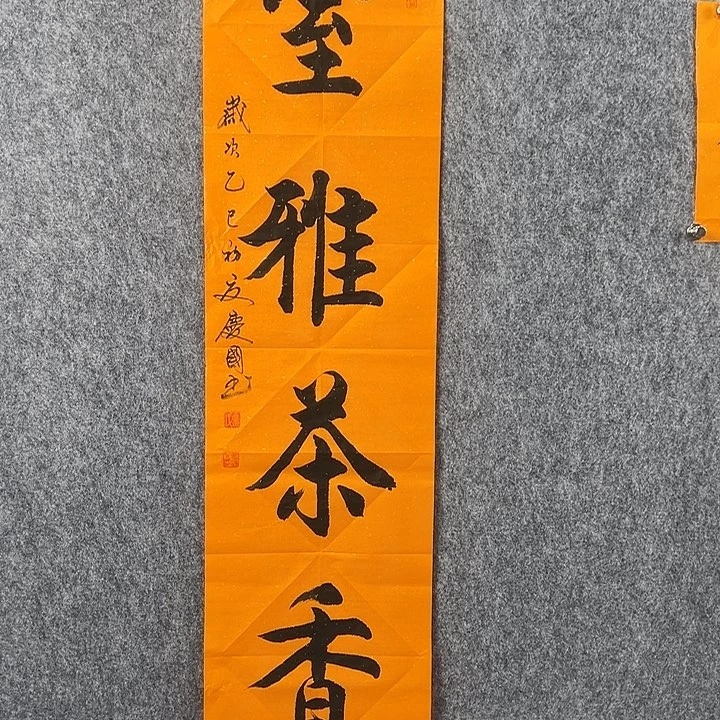 室雅茶香
歲次乙巳初夏慶國书